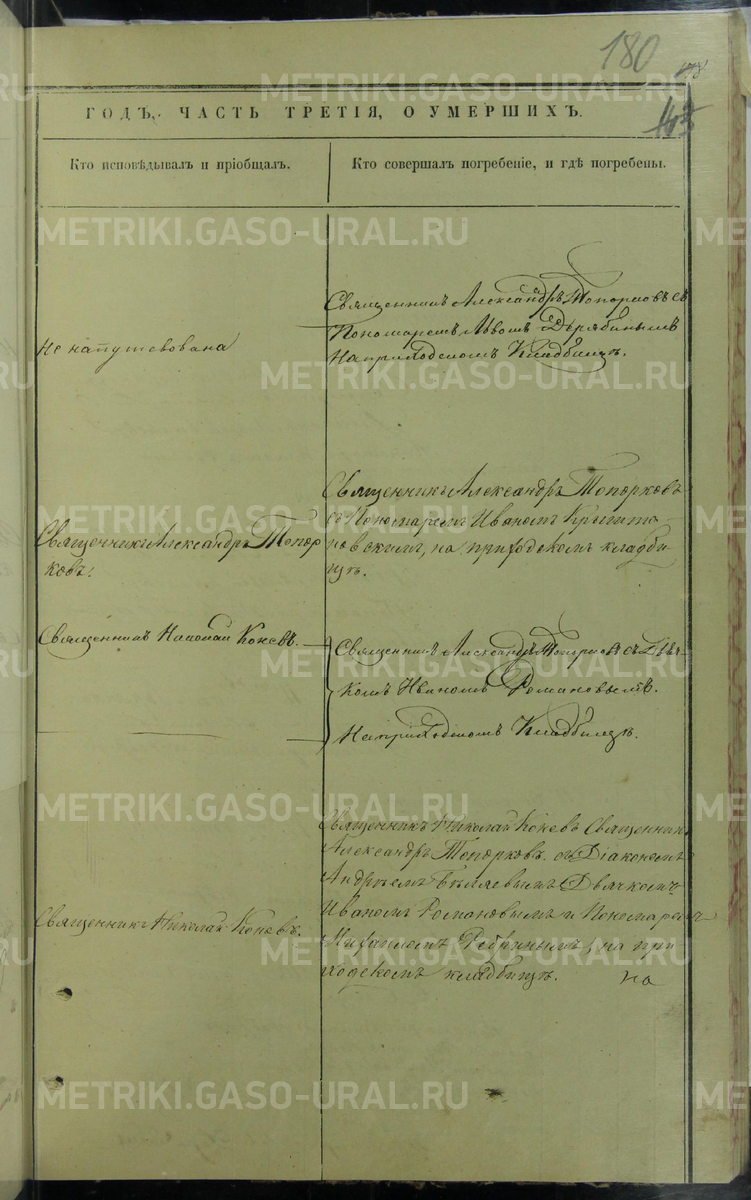 180
ГОДЪ, ЧАСТЬ ТРЕТІЯ, О УМЕРШИХЪ.
Кто исповѣдывалъ и пріобщалъ.
Кто совершалъ погребеніе, и гдѣ погребены.
Священникъ Александръ Топорковъ съ
Пономаремъ Львомъ Дерябинымъ
На приходскомъ Кладбищѣ.
Не напутсвована
Священникъ Александръ Топорковъ
съ Пономаремъ Иваномъ
на приходскомъ кладби
щѣ.
Священникъ Александръ Топор
ковъ.
Священникъ Николай Коневъ.
Священникъ Александръ Топорковъ съ Дьяч-
комъ Иваномъ Романовымъ.
На приходскомъ Кладбищѣ.
Священникъ Николай Коневъ Священникъ
Александръ Топорковъ съ Діакономъ
Андреемъ Бѣляевымъ Дьячкомъ
Иваномъ Романовымъ и Пономаремъ
Михаиломъ на при
ходскомъ кладбищѣ.
на
Священникъ Николай Коневъ.
METRIKI.GASO-URAL.RU